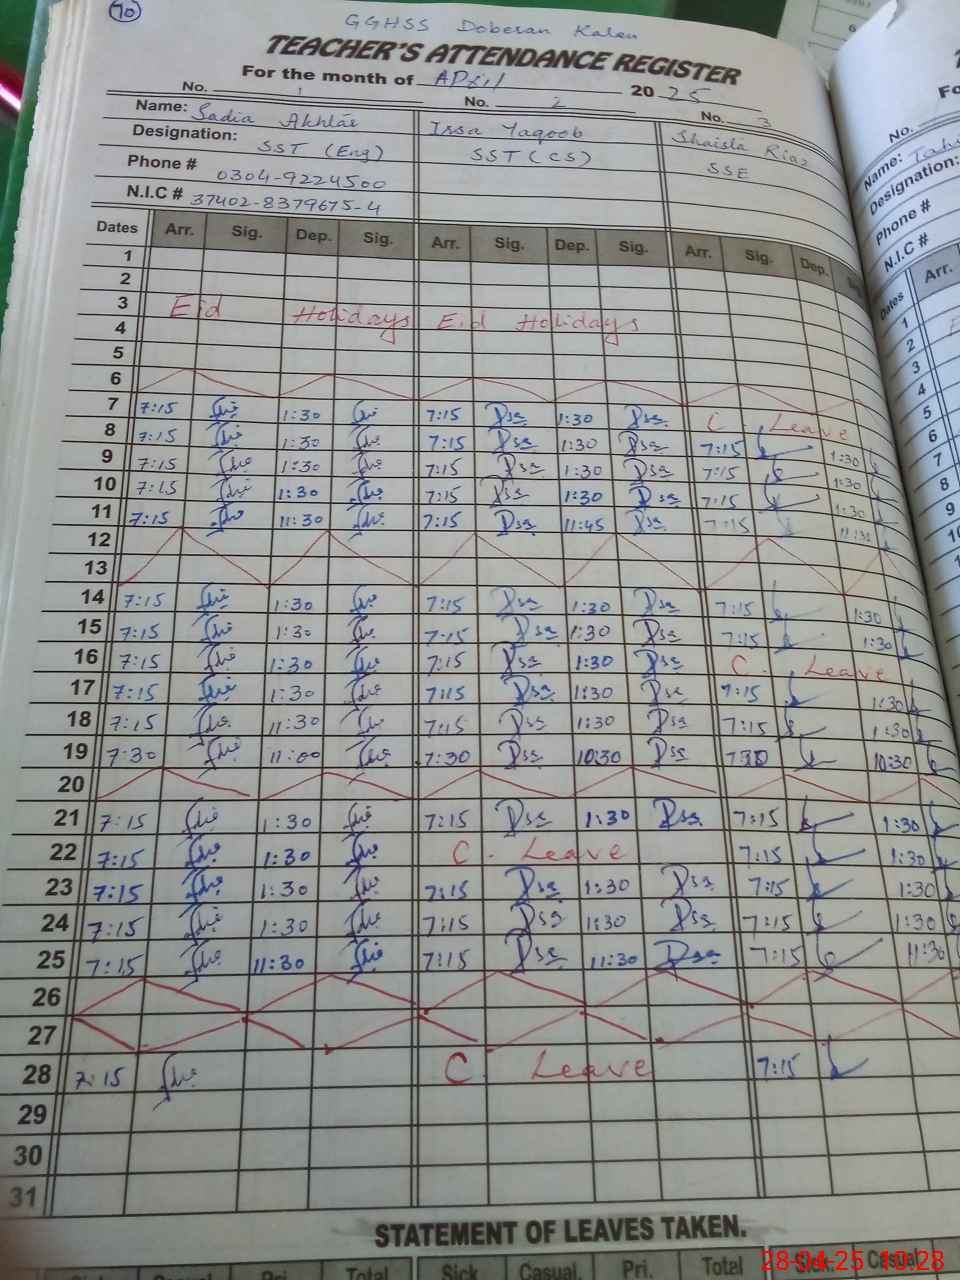 70
GGHSS Doberan Kalan
TEACHER'S ATTENDANCE REGISTER
For the month of April 2025
No. 1 No. 2 No. 3
Name: Sadia Akhtar Issa Yaqoob Shaisla Riaz
Designation: SST (Eng) SST (CS) SSE
Phone # 0304-9224500
N.I.C # 37402-8379675-4
Dates Arr. Sig. Dep. Sig. Arr. Sig. Dep. Sig. Arr. Sig. Dep.
1
2
3 Eid Holidays Eid Holidays
4
5
6
7 7:15 1:30 7:15 1:30 C. Leave
8 7:15 1:30 7:15 1:30 7:15 1:30
9 7:15 1:30 7:15 1:30 7:15 1:30
10 7:15 1:30 7:15 1:30 7:15 1:30
11 7:15 11:30 7:15 11:45 7:15 11:30
12
13
14 7:15 1:30 7:15 1:30 7:15 1:30
15 7:15 1:30 7:15 1:30 7:15 1:30
16 7:15 1:30 7:15 1:30 C. Leave
17 7:15 1:30 7:15 1:30 7:15 1:30
18 7:15 11:30 7:15 11:30 7:15 1:30
19 7:30 11:00 7:30 10:30 7:30 10:30
20
21 7:15 1:30 7:15 1:30 7:15 1:30
22 7:15 1:30 C. Leave 7:15 1:30
23 7:15 1:30 7:15 1:30 7:15 1:30
24 7:15 1:30 7:15 1:30 7:15 1:30
25 7:15 11:30 7:15 11:30 7:15 11:30
26
27
28 7:15 C. Leave 7:15
29
30
31
STATEMENT OF LEAVES TAKEN.
Sick Casual Pri. Total Sick Casual. Pri. Total Sick. Casual
No.
Name:
Designation:
Phone #
N.I.C #
Dates Arr.
1
2
3
4
5
6
7
8
9
10
28-04-25 10:28